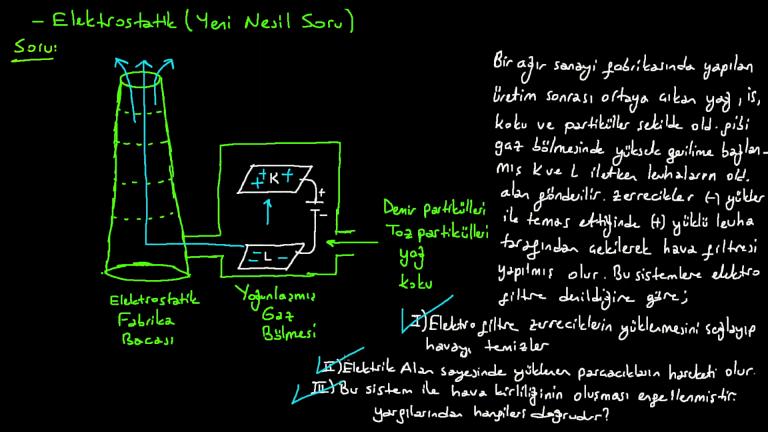 - Elektrostatik (Yeni Nesil Soru)
Soru:
Bir ağır sanayi fabrikasında yapılan
üretim sonrası ortaya çıkan yağ, is,
koku ve partiküller şekilde old. gibi
gaz bölmesinde yüksek gerilime bağlan-
mış K ve L iletken levhaların old.
alan gönderilir. Zerrecikler (-) yükler
ile temas ettiğinde (+) yüklü levha
tarafından çekilerek hava filtresi
yapılmış olur. Bu sistemlere elektro
filtre denildiğine göre;
I) Elektro filtre zerreciklerin yüklenmesini sağlayıp
havayı temizler
II) Elektrik Alan sayesinde yüklenen parçacıkların hareketi olur.
III) Bu sistem ile hava kirliliğinin oluşması engellenmiştir.
yargılarından hangileri doğrudur?
+ + K +
+
-
- L -
Demir partikülleri
Toz partikülleri
yağ
koku
Elektrostatik
Fabrika
Bacası
Yoğunlaşmış
Gaz
Bölmesi